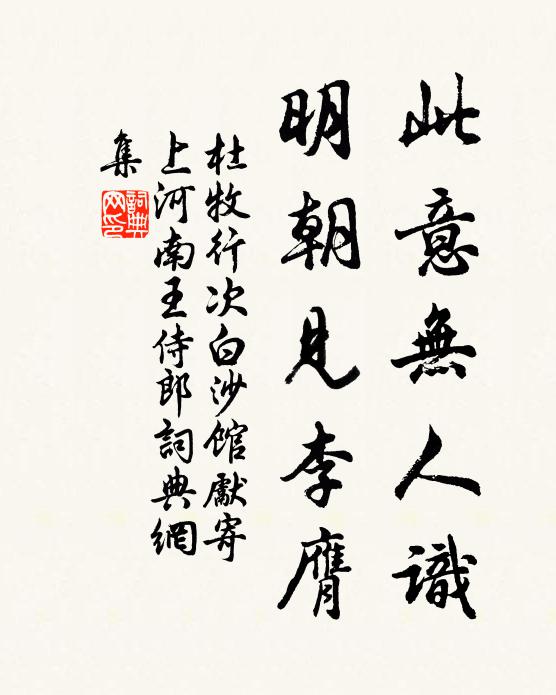 此意無人識
明朝見李膺
杜牧行次白沙館獻寄
上河南王侍郎詞典網
集
詞典
网印